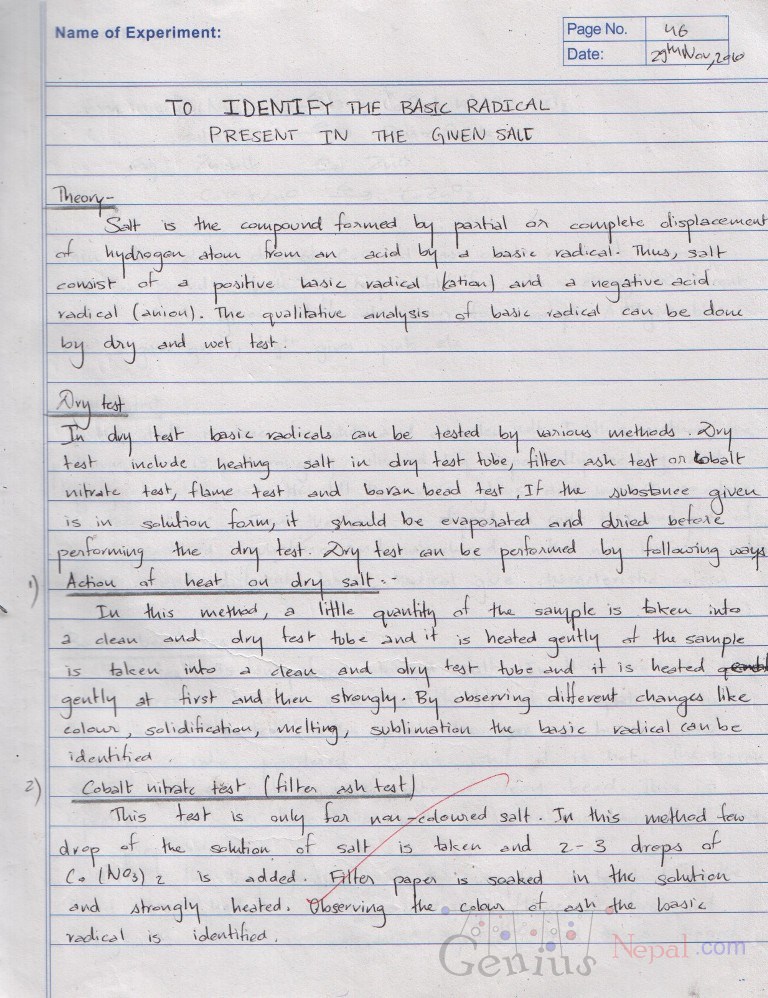 Name of Experiment:
Page No. 46
Date: 29th Nov, 2010
TO IDENTIFY THE BASIC RADICAL
PRESENT IN THE GIVEN SALT
Theory-
Salt is the compound formed by partial or complete displacement
of hydrogen atom from an acid by a basic radical. Thus, salt
consist of a positive basic radical (ation) and a negative acid
radical (anion). The qualitative analysis of basic radical can be done
by dry and wet test.
Dry test
In dry test basic radicals can be tested by various methods. Dry
test include heating salt in dry test tube, filter ash test or cobalt
nitrate test, flame test and boran bead test, If the substance given
is in solution form, it should be evaporated and dried before
performing the dry test. Dry test can be performed by following ways
1) Action of heat on dry salt:-
In this method, a little quantity of the sample is taken into
a clean and dry test tube and it is heated gently of the sample
is taken into a clean and dry test tube and it is heated
gently at first and then strongly. By observing different changes like
colour, solidification, melting, sublimation the basic radical can be
identified.
2) Cobalt nitrate test (filter ash test)
This test is only for non-coloured salt. In this method few
drop of the solution of salt is taken and 2-3 drops of
Co (NO3) 2 is added. Filter paper is soaked in the solution
and strongly heated. Observing the colour of ash the basic
radical is identified.
Genius Nepal.com